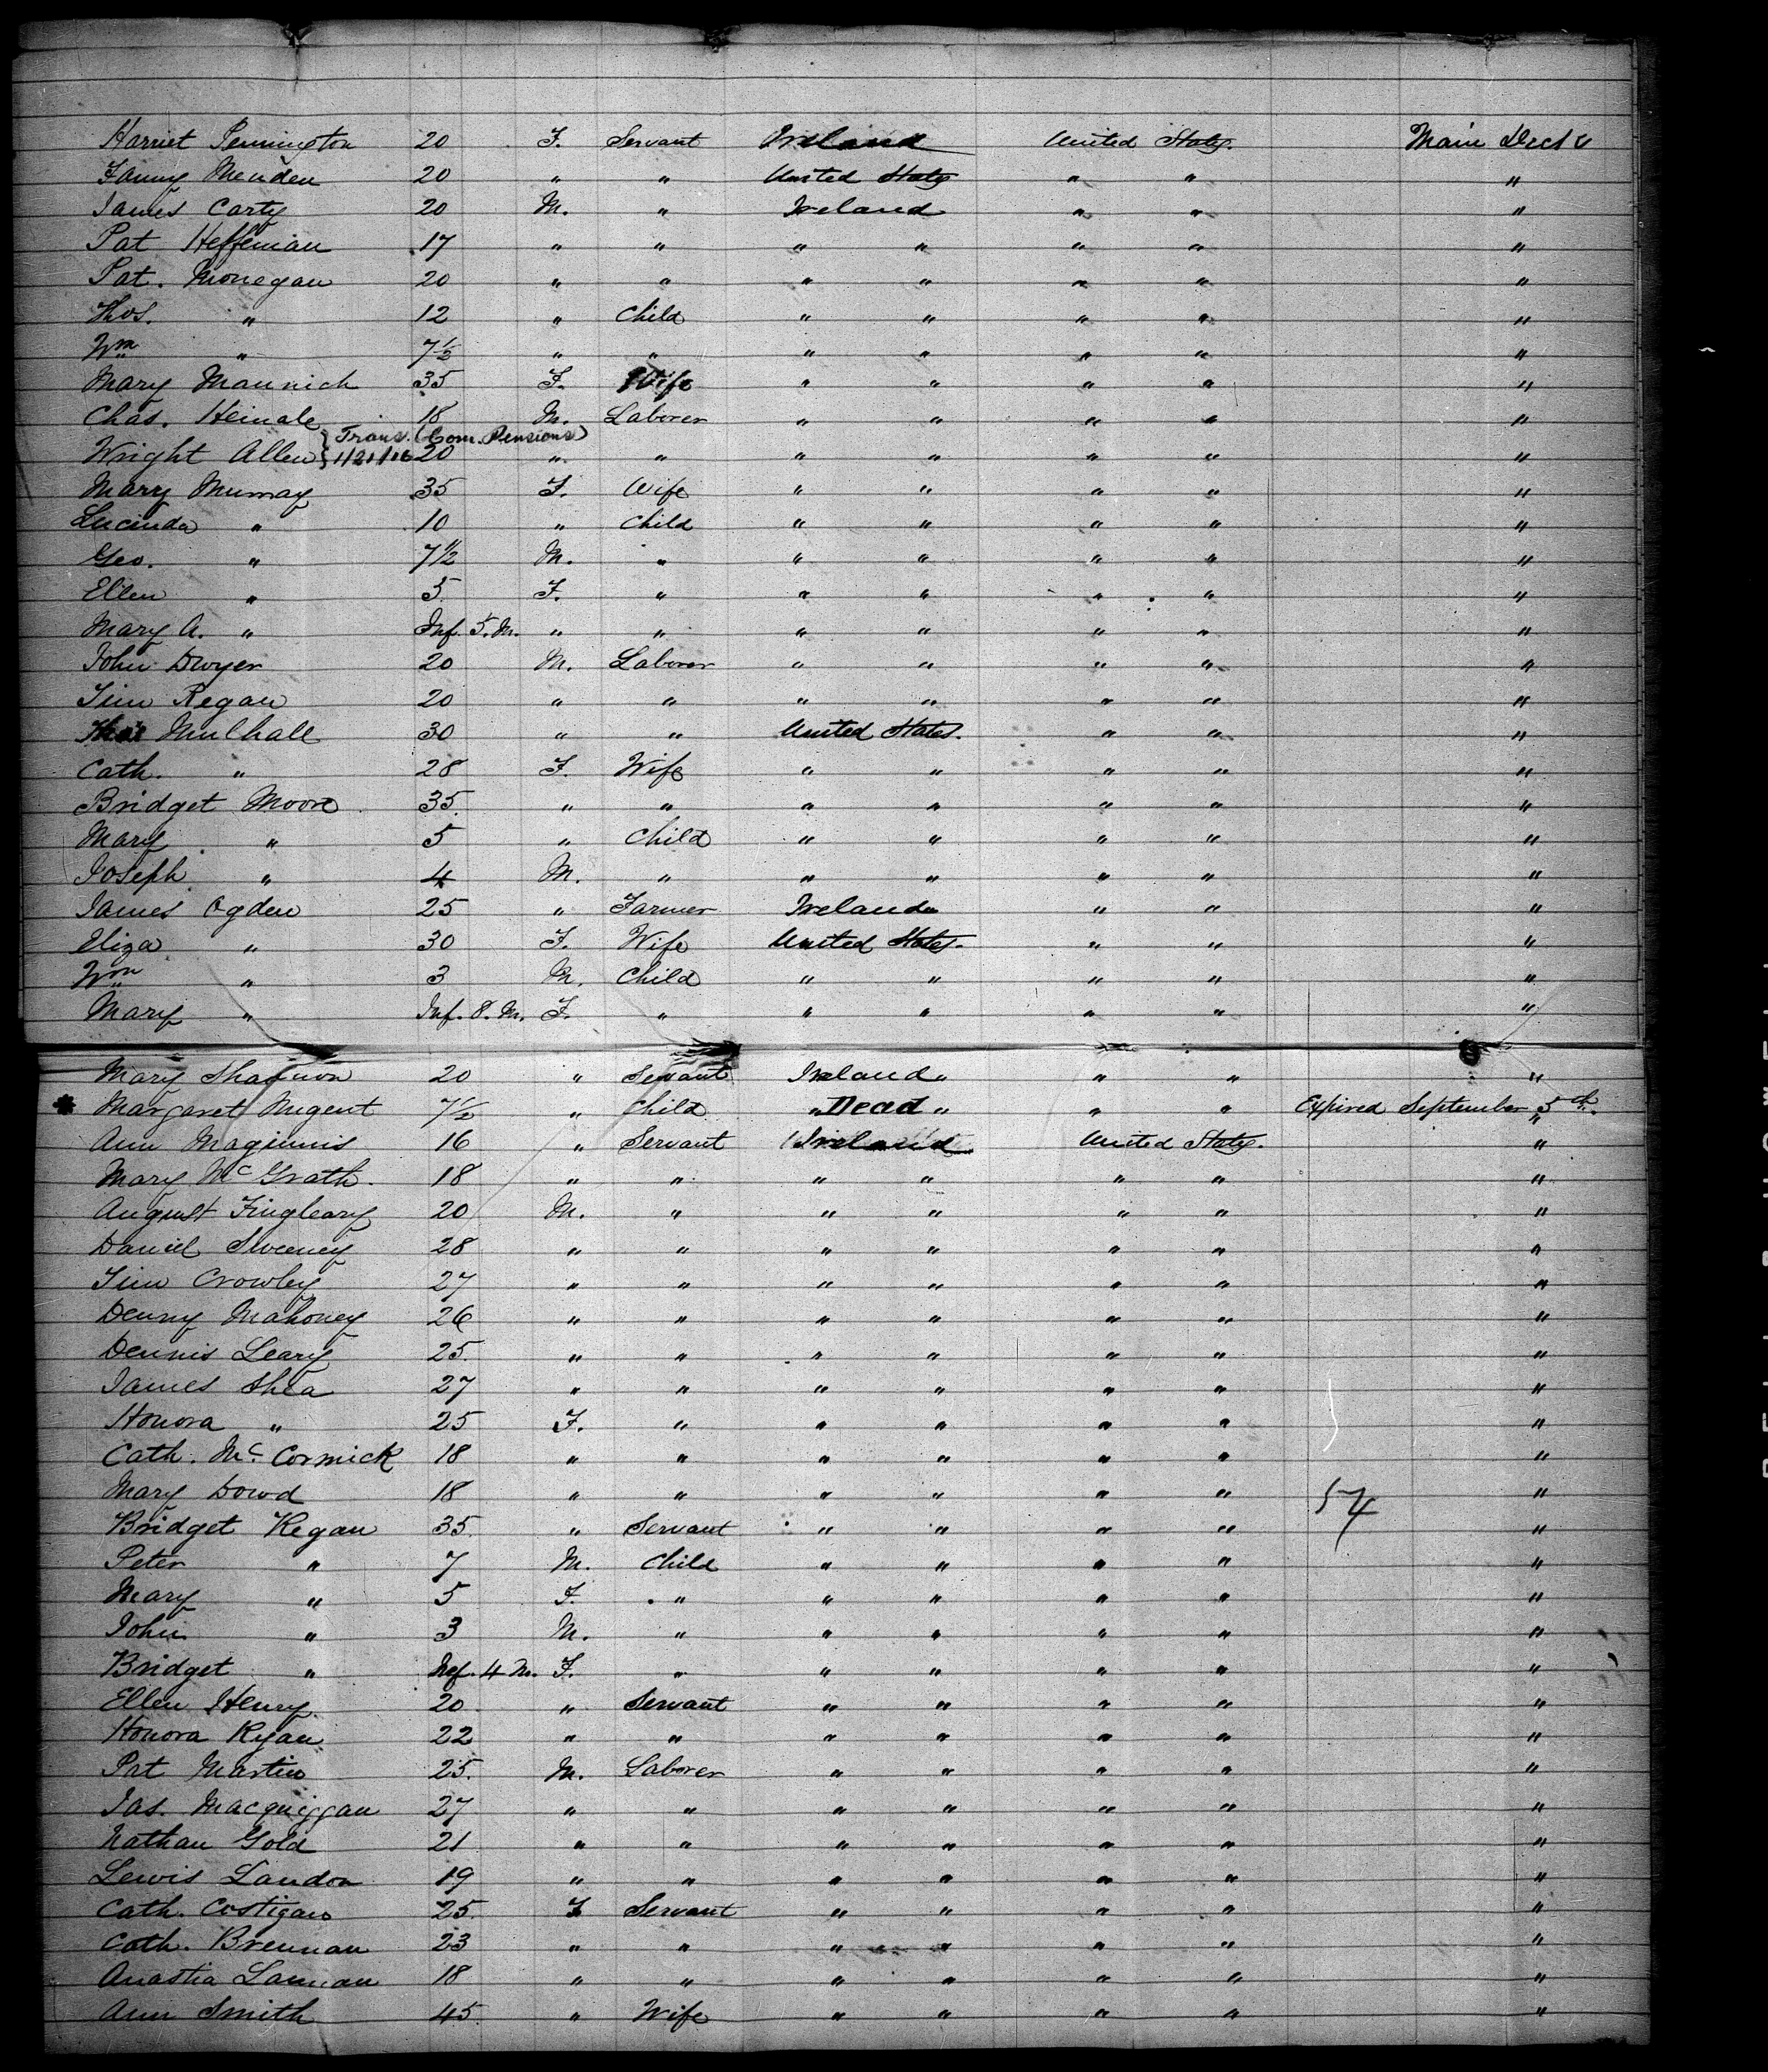 Harriet Pennington 20 F. Servant Ireland United States. Main Deck
Fanny Menden 20 " " United States " " "
James Carty 20 M. " Ireland " " "
Pat Heffernan 17 " " " " " " "
Pat. Monegan 20 " " " " " " "
Thos. " 12 " Child " " " " "
Wm " 7½ " " " " " " "
Mary Mannich 35 F. Wife " " " " "
Chas. Heinale 18 M. Laborer " " " " "
Trans. (Com. Pensions)
Wright Allen 1/21/16 20 " " " " " " "
Mary Murray 35 F. Wife " " " " "
Lucinda " 10 " Child " " " " "
Geo. " 7½ M. " " " " " "
Ellen " 5 F. " " " " " "
Mary A. " Inf. 5. M. " " " " " " "
John Dwyer 20 M. Laborer " " " " "
Tim Regan 20 " " " " " " "
Mulhall 30 " " United States. " " "
Cath. " 28 F. Wife " " " " "
Bridget Moore 35. " " " " " " "
Mary " 5 " Child " " " " "
Joseph " 4 M. " " " " " "
James Ogden 25 " Farmer Ireland " " "
Eliza " 30 F. Wife United States. " " "
Wm " 3 M. Child " " " " "
Mary " Inf. 8. M. F. " " " " " "
Mary Shannon 20 " Servant Ireland " " " "
* Margaret Nugent 7½ " Child " Dead " " " Expired September 5th. "
Ann Maginnis 16 " Servant Ireland United States. "
Mary McGrath. 18 " " " " " " "
August Fingleary 20 M. " " " " " "
Daniel Sweeney 28 " " " " " " "
Tim Crowley 27 " " " " " " "
Denny Mahoney 26 " " " " " " "
Dennis Leary 25. " " " " " " "
James Shea 27 " " " " " " "
Honora " 25 F. " " " " " "
Cath. McCormick 18 " " " " " " "
Mary Dowd 18 " " " " " " "
57
Bridget Kegan 35. " Servant " " " " "
Peter " 7 M. Child " " " " "
Mary " 5 F. " " " " " "
John " 3 M. " " " " " "
Bridget " Inf. 4 M. F. " " " " " "
Ellen Henry. 20 " Servant " " " " "
Honora Ryan 22 " " " " " " "
Pat Martin 25. M. Laborer " " " " "
Jas. Macquiggan 27 " " " " " " "
Nathan Gold 21 " " " " " " "
Lewis Landon 19 " " " " " " "
Cath. Costigan 25. F Servant " " " " "
Cath. Brennan 23 " " " " " " "
Anastia Lannan 18 " " " " " " "
Ann Smith 45. " Wife " " " " "